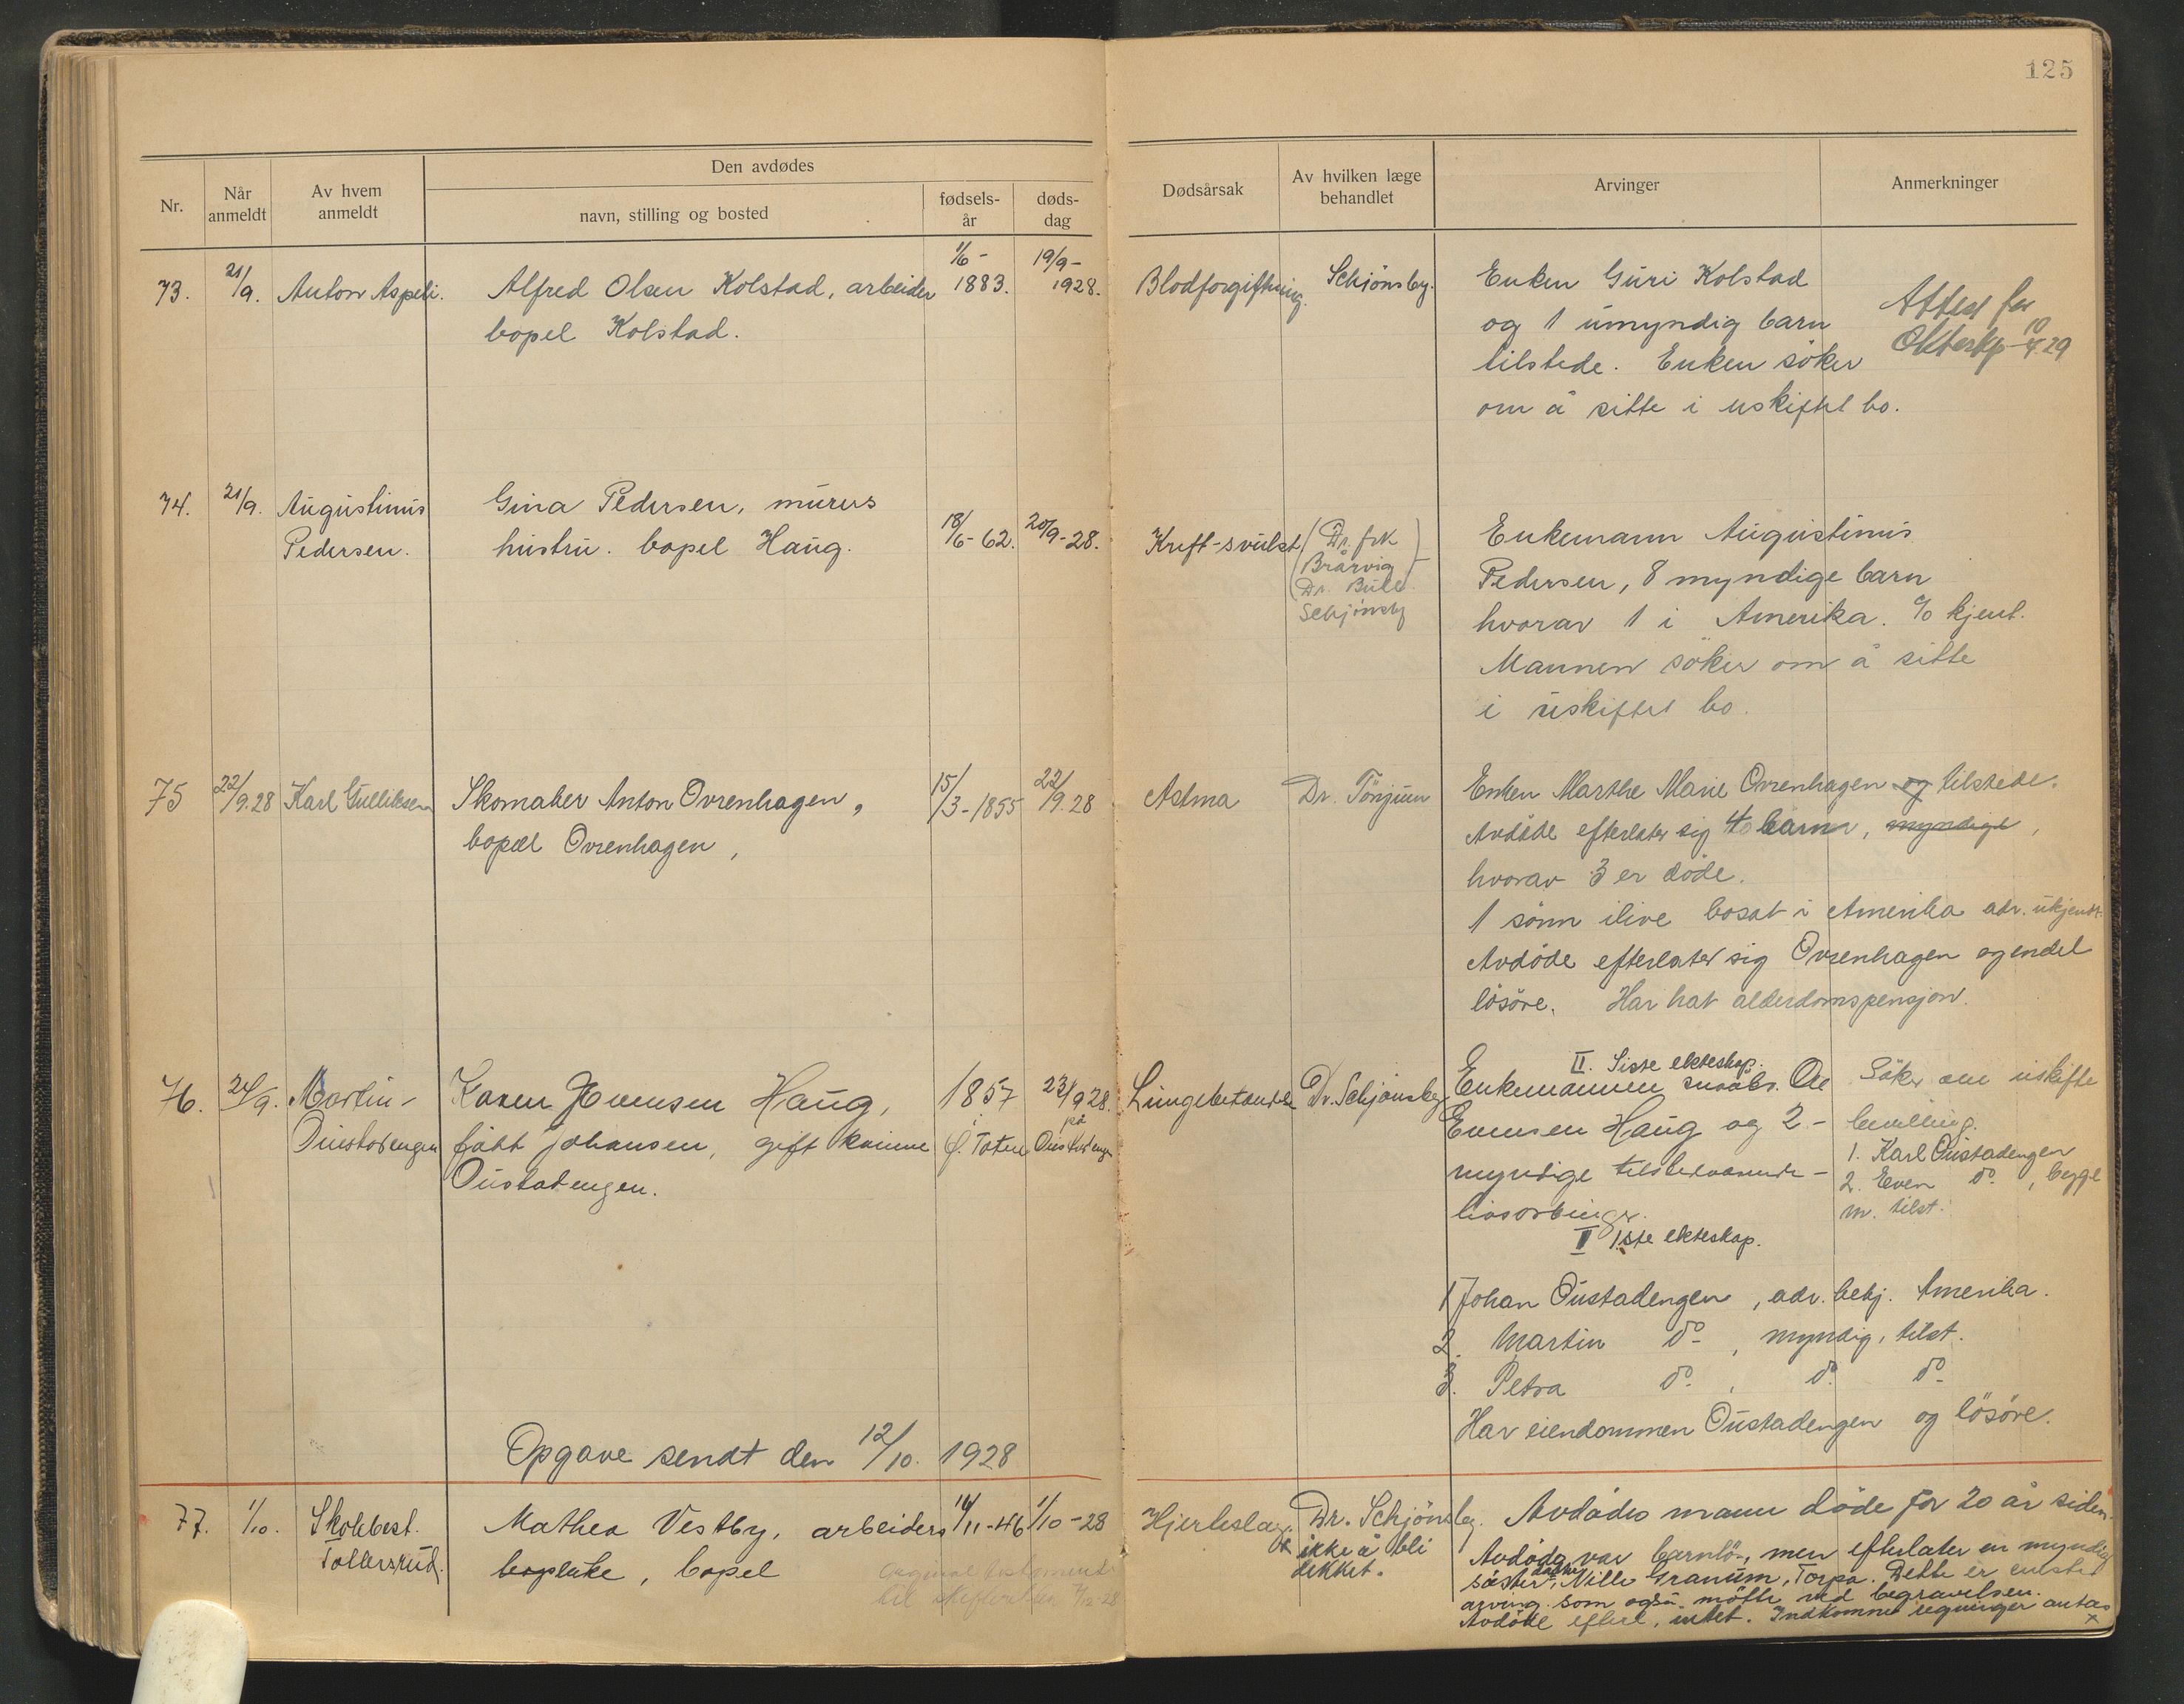 125
Den avdødes
Nr.
Når anmeldt
Av hvem anmeldt
navn, stilling og bosted
fødsels-år
døds-dag
Dødsårsak
Av hvilken læge behandlet
Arvinger
Anmerkninger
73. 21/9. Anton Aspeli. Alfred Olsen Kolstad, arbeider 1/6- 1883. 19/9- 1928.
bopel Kolstad.
Blodforgiftning. Schiönsby. Enken Guri Kolstad
og 1 umyndig barn
tilstede. Enken söker
om å sitte i uskiftet bo.
Attest for
10/4 29
74. 21/9. Augustinus Gina Pedersen, murers
Pedersen. hustru. bopel Haug. 18/6-62. 20/9-28.
Kreft-svulst (Dr. frk
Brårvig)
Dr. Bull
Schjönsby
Enkemann Augustinus
Pedersen, 8 myndige barn
hvorav 1 i Amerika. % kjent.
Mannen söker om å sitte
i uskiftet bo.
75 22/9.28 Karl Gulliksen Skomaker Anton Ovrenhagen, 15/3-1855 22/9.28
bopæl Ovrenhagen,
Astma Dr. Tönjum Enken Marthe Marie Ovrenhagen og tilstede.
Avdöde efterlater sig 4 barn, myndige,
hvorav 3 er döde.
1 sönn ilive bosat i Amerika adr. ukjendt.
Avdöde efterlater sig Ovrenhagen og endel
lösöre. Har hat alderdomspensjon.
76. 24/9. Martin- Karen Evensen Haug, 1857 23/9 28.
på
Oustadengen født Johansen, gift kvinne f. Toten Oustadengen
Oustadengen.
Lungebetændelse Dr. Schjønsby
II. Siste ekteskap.
Enkemannen snoabr. Ole
Evensen Haug og 2-
myndige tilstedværende-
livsarvinger.
Söker om uskifte
bevilling.
1. Karl Oustadengen
2. Even do, begge
m. tilst.
I 1ste ekteskap.
1 Johan Oustadengen, adr. bekj. Amerika.
2. Martin do-, myndig, tilst.
3. Petra do-, do- do-
Har eiendommen Oustadengen og lösöre.
Opgave sendt den 12/10. 1928
77. 1/10. Skokbest. Mathea Vestby, arbeiders 14/11-46 1/10-28
Tollersrud. enke, bopel
original testament
til skifteretten 7/12-28
Hjerteslag. Dr. Schjönsby. Avdødes mann döde for 20 år siden.
x ikke å bli
dekket.
Avdöde var barnlös, men efterlater en myndig
søster datter, Nille Granum, Torpa. Dette er eneste
arving som også møtte ved begravelsen.
Avdöde efterl. intet. Indkomne regninger antas
x